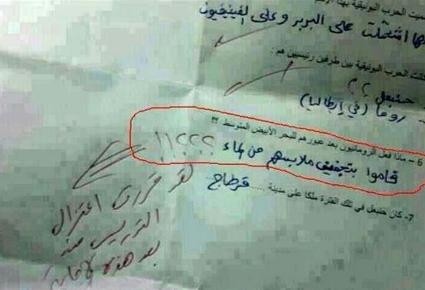 الحرب البونيقية
ها اشتملت على البربر وعلى الفينيقيون
الحرب البونيقية بين طرفين رئيسيين هم :
حنبعل
روما (في إيطاليا)
6 – ماذا فعل الرومانيون بعد عبورهم للبحر الأبيض المتوسط ؟؟
قاموا بتجفيف ملابسهم من الماء ؟؟؟!!
7- كان حنبعل في تلك الفترة ملكا على مدينة ..... قرطاج
لقد قررت اعتزال
التدريس منذ
بعد هذه الإجابة